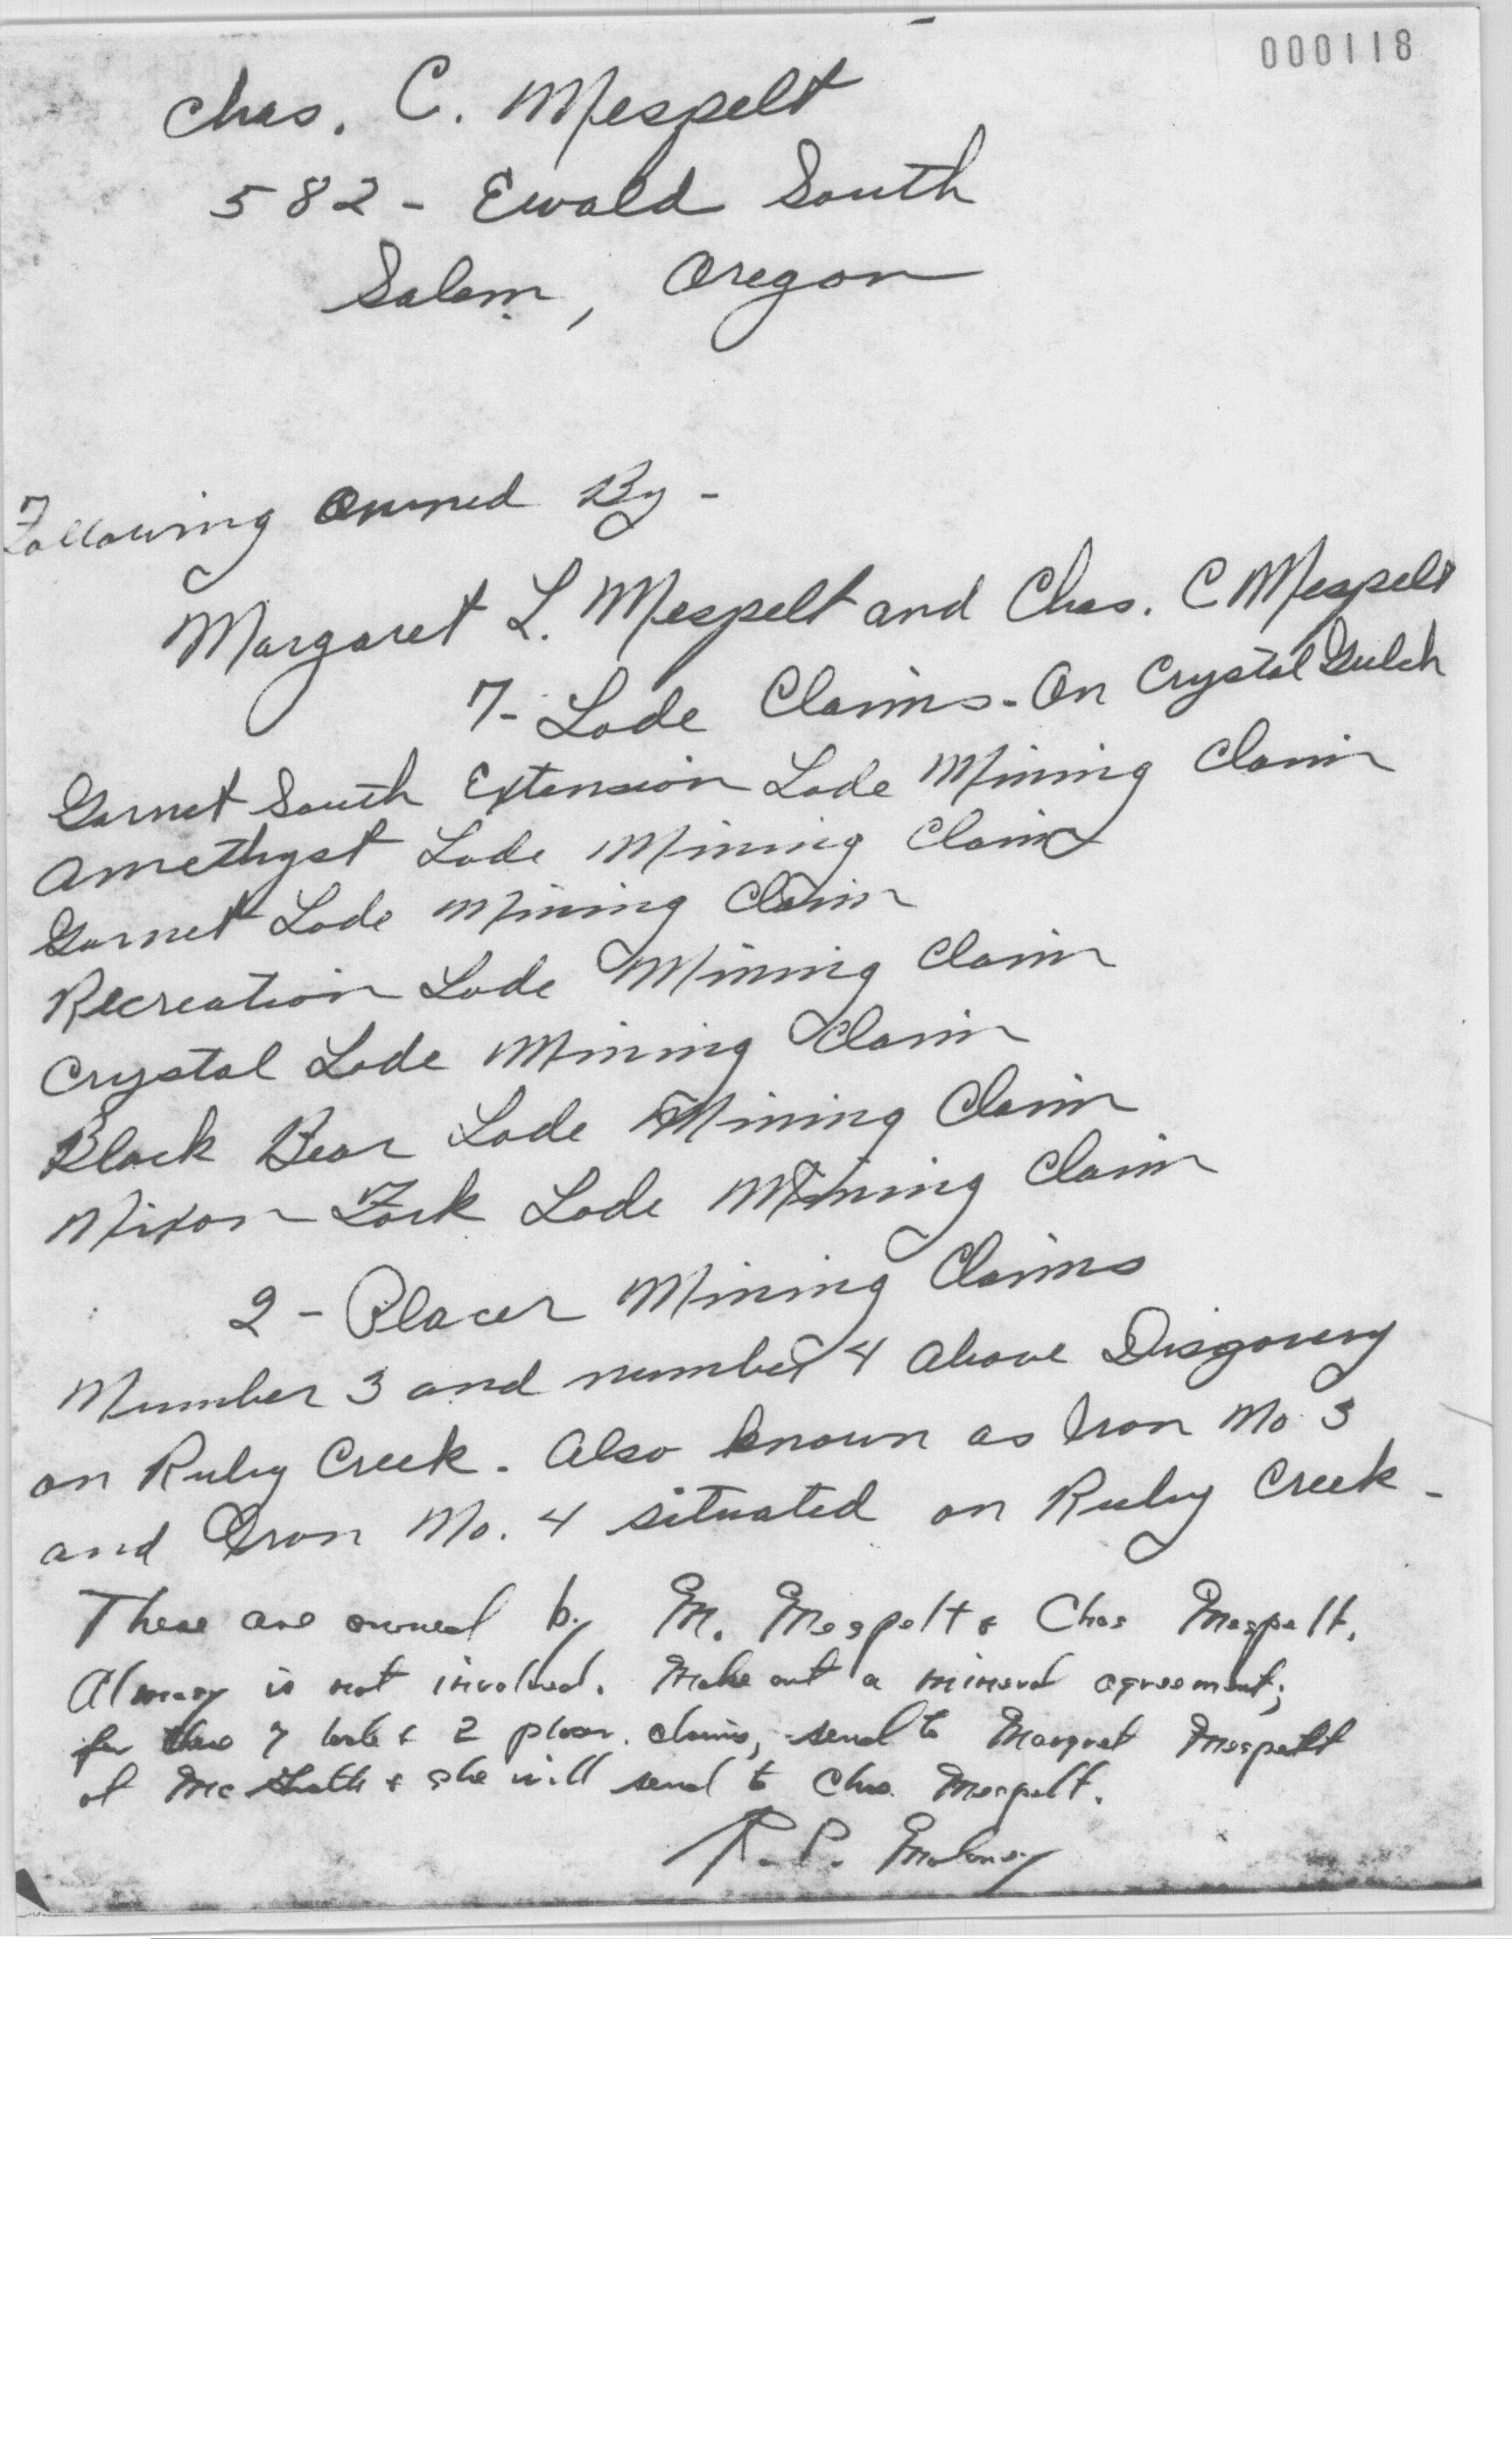 000118
Chas. C. Mespelt
582 - Ewald South
Salem, Oregon
Following Owned By -
Margaret L. Mespelt and Chas. C Mespelt
7- Lode Claims - On Crystal Gulch
Garnet South Extension Lode Mining Claim
Amethyst Lode Mining Claim
Garnet Lode Mining Claim
Recreation Lode Mining Claim
Crystal Lode Mining Claim
Black Bear Lode Mining Claim
Nixon Fork Lode Mining Claim
2 - Placer Mining Claims
Number 3 and number 4 above Discovery
on Ruby Creek. Also known as Iron No 3
and Iron No. 4 situated on Ruby Creek -
These are owned by M. Mespelt & Chas Mespelt.
Almasy is not involved. Make out a mineral agreement,
for these 7 lode & 2 placer claims, send to Margret Mespelt
at McGrath & she will send to Chas. Mespelt.
R. P. Maloney